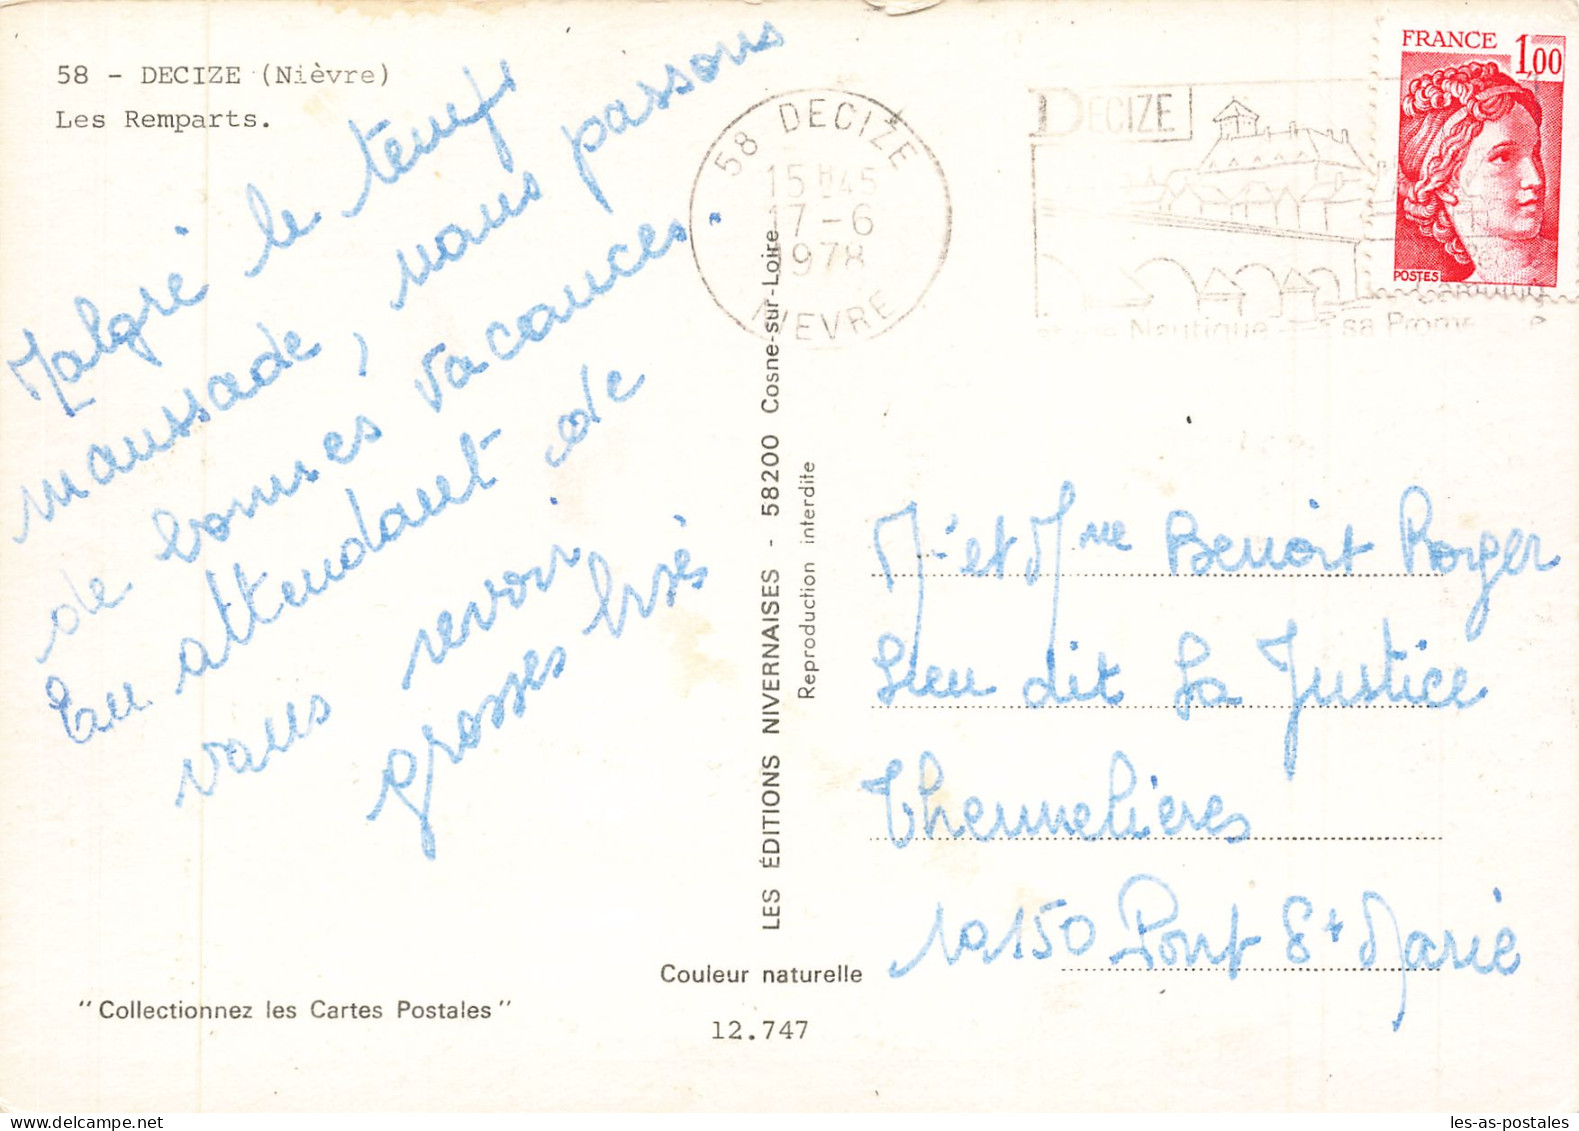 58 - DECIZE (Nièvre)
Les Remparts.
Malgré le temps
maussade, nous passons
de bonnes vacances.
En attendant de
vous revoir
grosses bises
"Collectionnez les Cartes Postales"
58 DECIZE
15H45
17-6
1978
NIEVRE
DECIZE
Nautique - sa Prome
FRANCE 1,00
POSTES
LES ÉDITIONS NIVERNAISES - 58200 Cosne-sur-Loire
Reproduction interdite
Couleur naturelle
12.747
Mr et Mme Benoit Roger
Lieu dit La Justice
Thennelieres
10150 Pont Ste Marie
les-as-postales